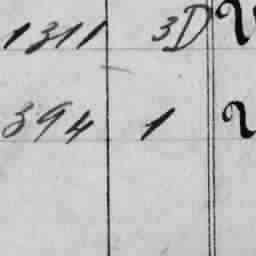 1311 3D
394 1